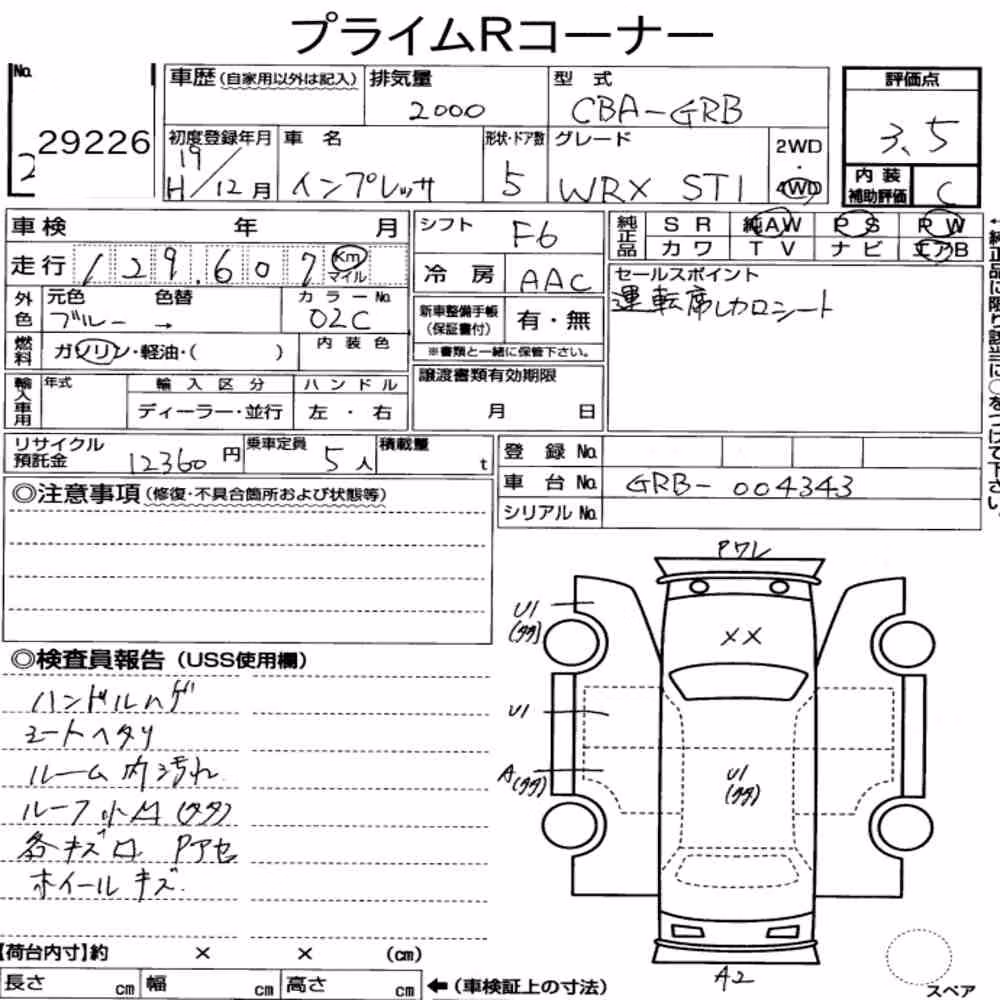 プライムRコーナー
No.
29226
2
車歴(自家用以外は記入)
排気量
2000
型 式
CBA-GRB
評価点
3.5
初度登録年月
19
H/12月
車 名
インプレッサ
形状・ドア数
5
グレード
WRX STI
2WD
・
4WD
内 装
補助評価
C
車検 年 月
走行 129.607 Km
マイル
シフト
F6
冷 房
AAC
純正品
S R 純AW P S P W
カ ワ T V ナ ビ エアB
←純正品に限り該当に○をつけて下さい。
外色
元色 色替
ブルー →
カラーNo.
02C
新車整備手帳
(保証書付)
有・無
※書類と一緒に保管下さい。
セールスポイント
運転席レカロシート
燃料
ガソリン・軽油・( )
内 装 色
輸入車用
年式
輸 入 区 分
ディーラー・並行
ハ ン ド ル
左 ・ 右
譲渡書類有効期限
月 日
リサイクル
預託金
12360円
乗車定員
5人
積載量
t
登 録 No.
車 台 No. GRB-004343
シリアル No.
◎注意事項(修復・不具合箇所および状態等)
◎検査員報告(USS使用欄)
ハンドルハゲ
シートヘタリ
ルーム内汚れ
ルーフ小凹(タタ)
各キズ凹 Pアセ
ホイールキズ.
PワレU1
(タタ)
XX
U1
A(タタ)
U1
(タタ)
A2
スペア
【荷台内寸】約 × × (cm)
長さ cm 幅 cm 高さ cm ←(車検証上の寸法)